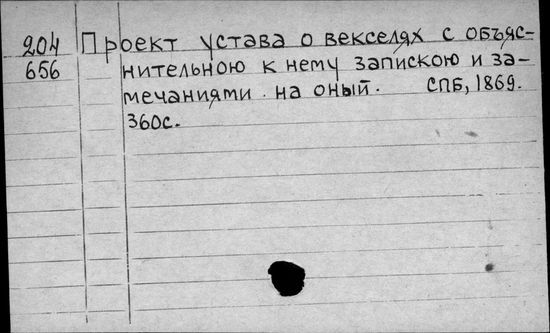 204 Проект устава о векселях с объяс-
656 нительною к нему запискою и за-
мечаниями на оный. СПБ, 1869.
360с.